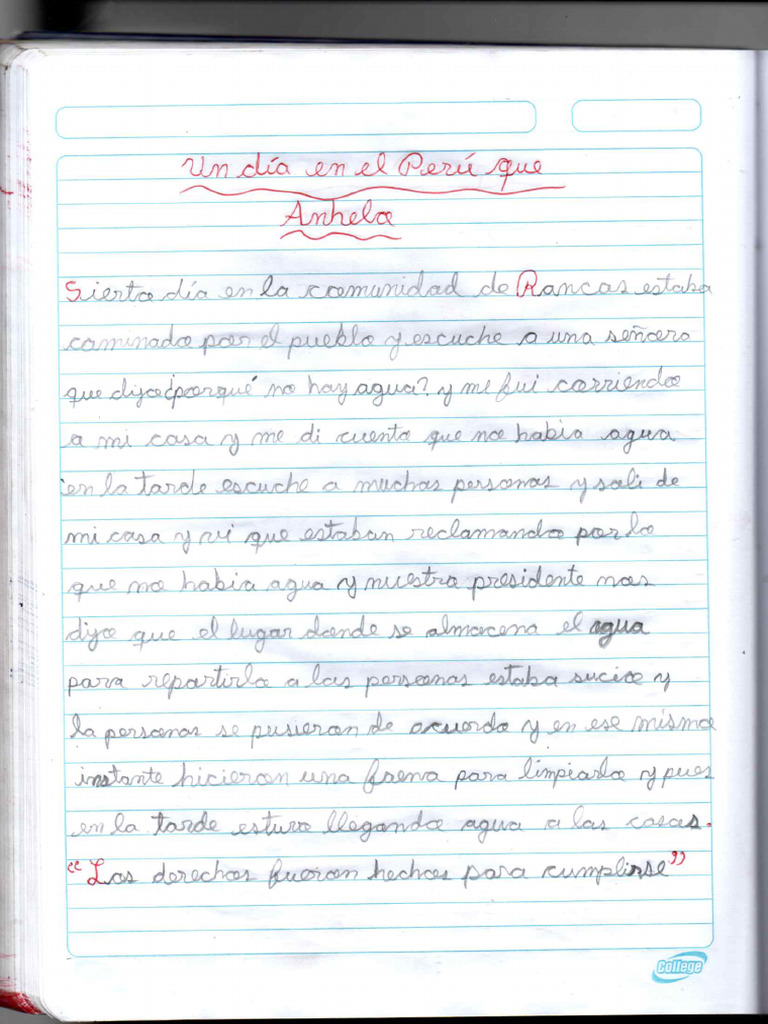 Un día en el Perú que
Anhelo
Sierto día en la comunidad de Rancas estaba
caminado por el pueblo y escuche a una señora
que dijo ¿porqué no hay agua? y me fui corriendo
a mi casa y me di cuenta que no habia agua
en la tarde escuche a muchas personas y sali de
mi casa y vi que estaban reclamando por lo
que no habia agua y nuestro presidente nos
dijo que el lugar donde se almacena el agua
para repartirlo a las personas estaba sucio y
la personas se pusieron de acuerdo y en ese mismo
instante hicieron una faena para limpiarlo y pues
en la tarde estuvo llegando agua a las casas.
“Los derechos fueron hechos para cumplirse”
College